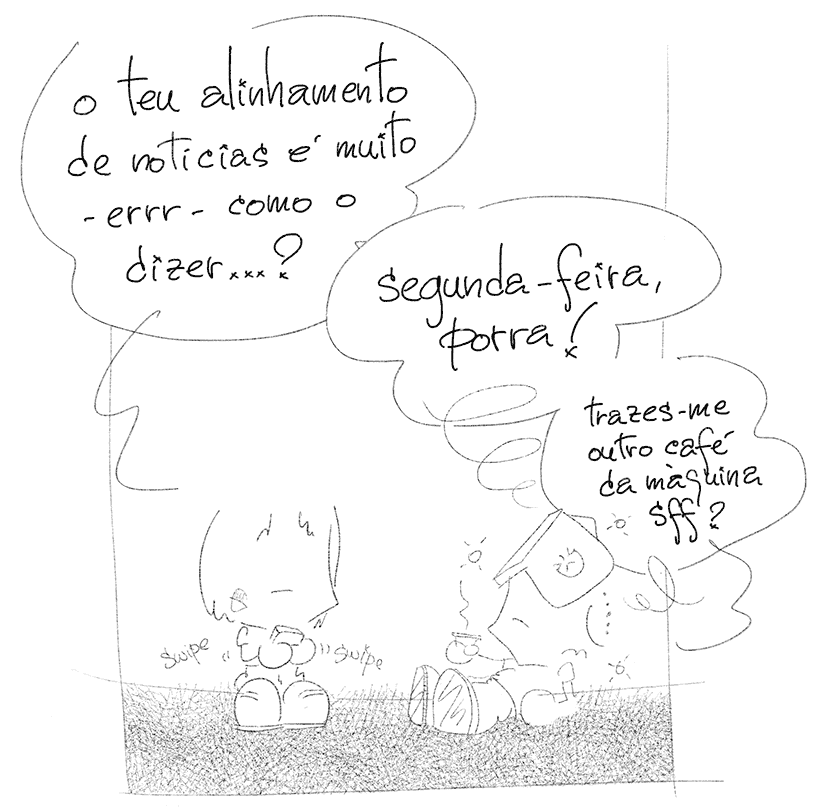 o teu alinhamento
de noticias é muito
-errr- como o
dizer...?
segunda-feira,
porra!
trazes-me
outro café
da màquina
sff?
swipe
swipe